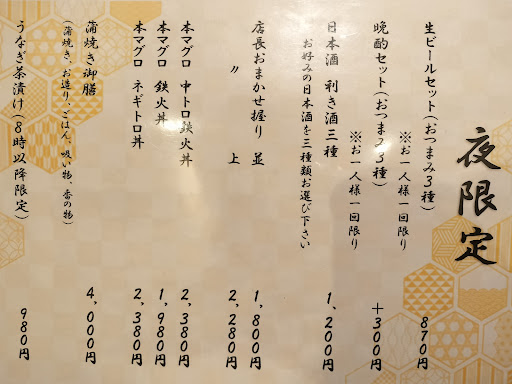 夜限定
生ビールセット(おつまみ3種) 870円
※お一人様一回限り
晩酌セット(おつまみ3種) +300円
※お一人様一回限り
日本酒 利き酒三種 1,200円
お好みの日本酒を三種類お選び下さい
店長おまかせ握り 並 1,800円
〃 上 2,280円
本マグロ 中トロ鉄火丼 2,380円
本マグロ 鉄火丼 1,980円
本マグロ ネギトロ丼 2,380円
蒲焼き御膳 4,000円
(蒲焼き、お造り、ごはん、吸い物、香の物)
うなぎ茶漬け(8時以降限定) 980円